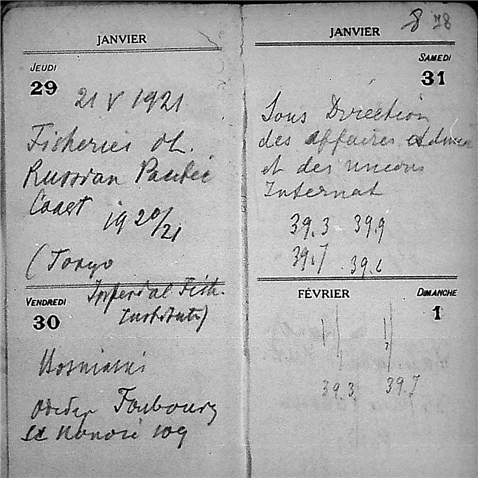 JANVIER
JEUDI
29
21 V 1921
Fisheries of
Russian Pacific
Coast 1920/21
(Tokyo
Imperial Fish.
Institute)
VENDREDI
30
Faubourg
St Honoré 109
JANVIER
8 78
SAMEDI
31
Sous Direction
des affaires
et des unions
Internat
39.3 39.9
39.7 39.6
FÉVRIER
DIMANCHE
1
39.3 39.7